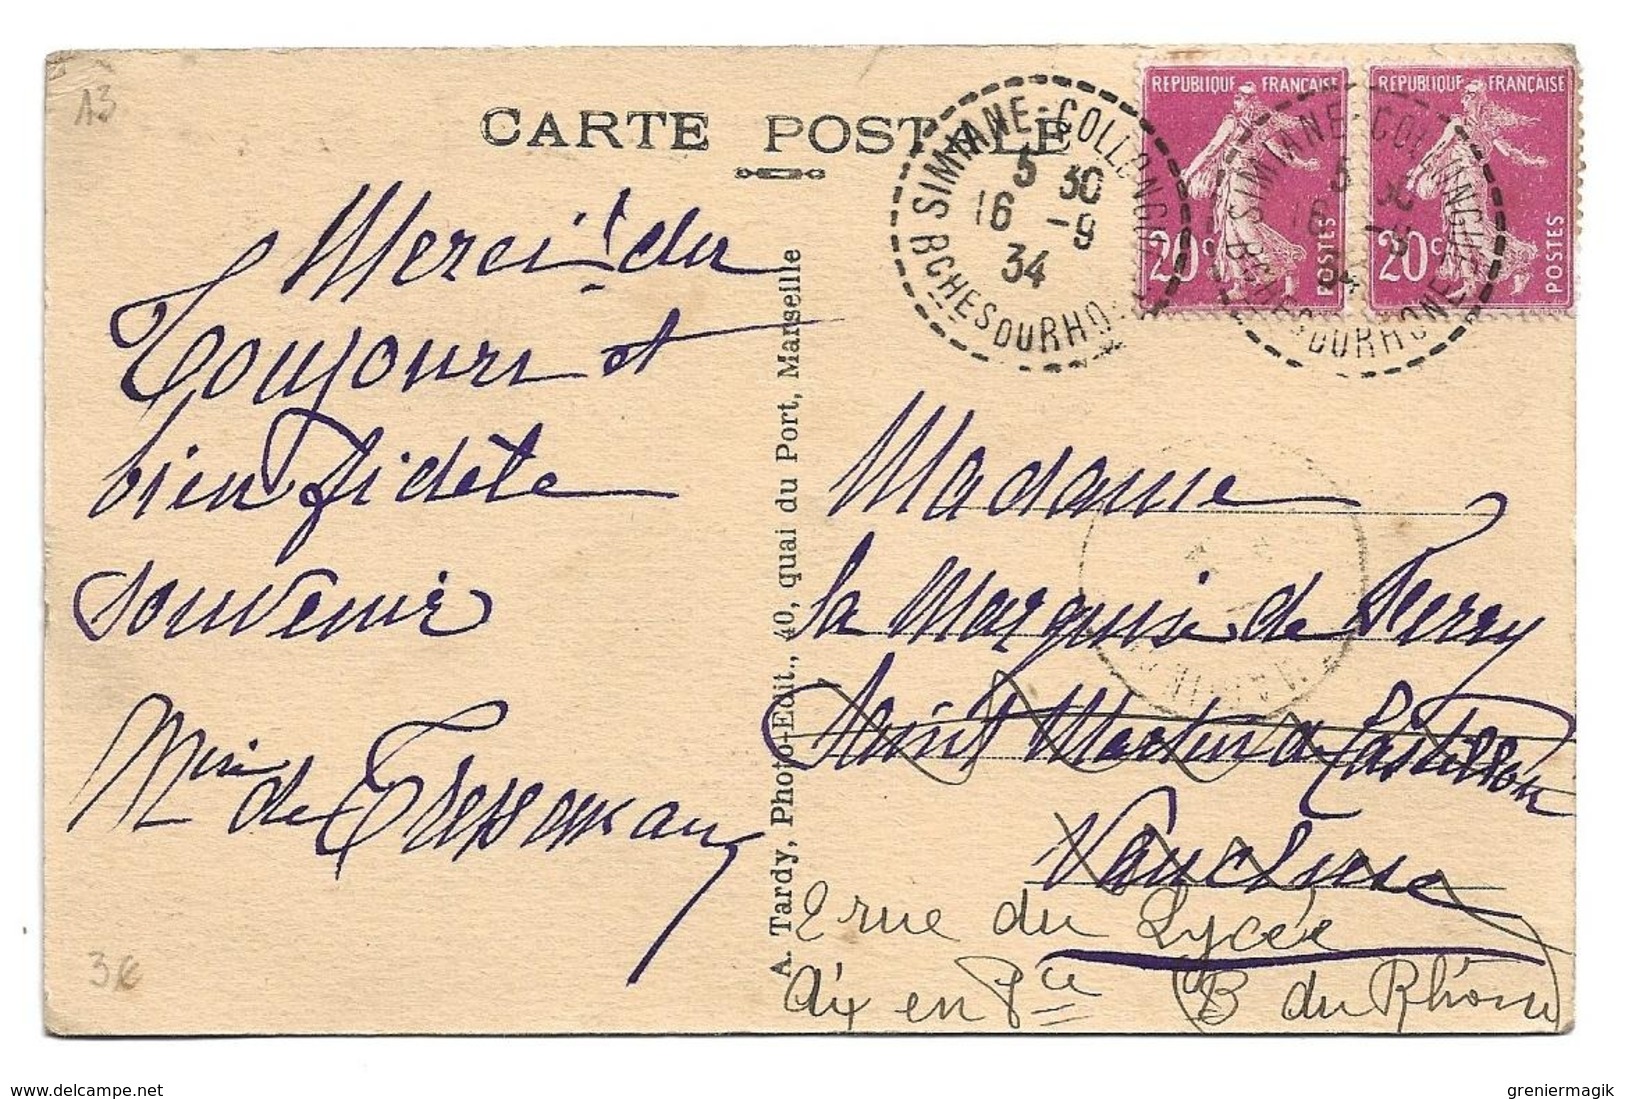 13
CARTE POSTALE
SIMIANE-COLLONGUE
5 30
16 -9
34
BCHES DU RHO
REPUBLIQUE FRANÇAISE
20c POSTES
REPUBLIQUE FRANÇAISE
20c POSTES
SIMIANE-COLLONGUE
5 30
16 -9
34
BCHES DU RHONE
Merci du
Toujours et
bien fidèle
souvenir
de
3€
A. Tardy, Photo-Edit., 40, quai du Port, Marseille
Madame
la Marquise de
Saint Martin de Castillon
Vaucluse
2 rue du Lycée
Aix en Pce (B du Rhône)
www.delcampe.net
greniermagik